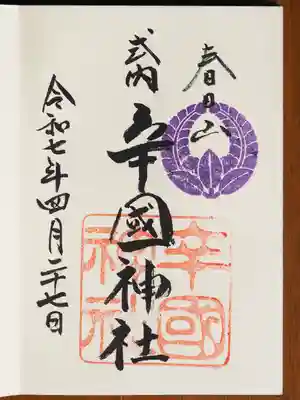 春日山
式内
辛國神社
令和七年四月二十七日
辛國神社